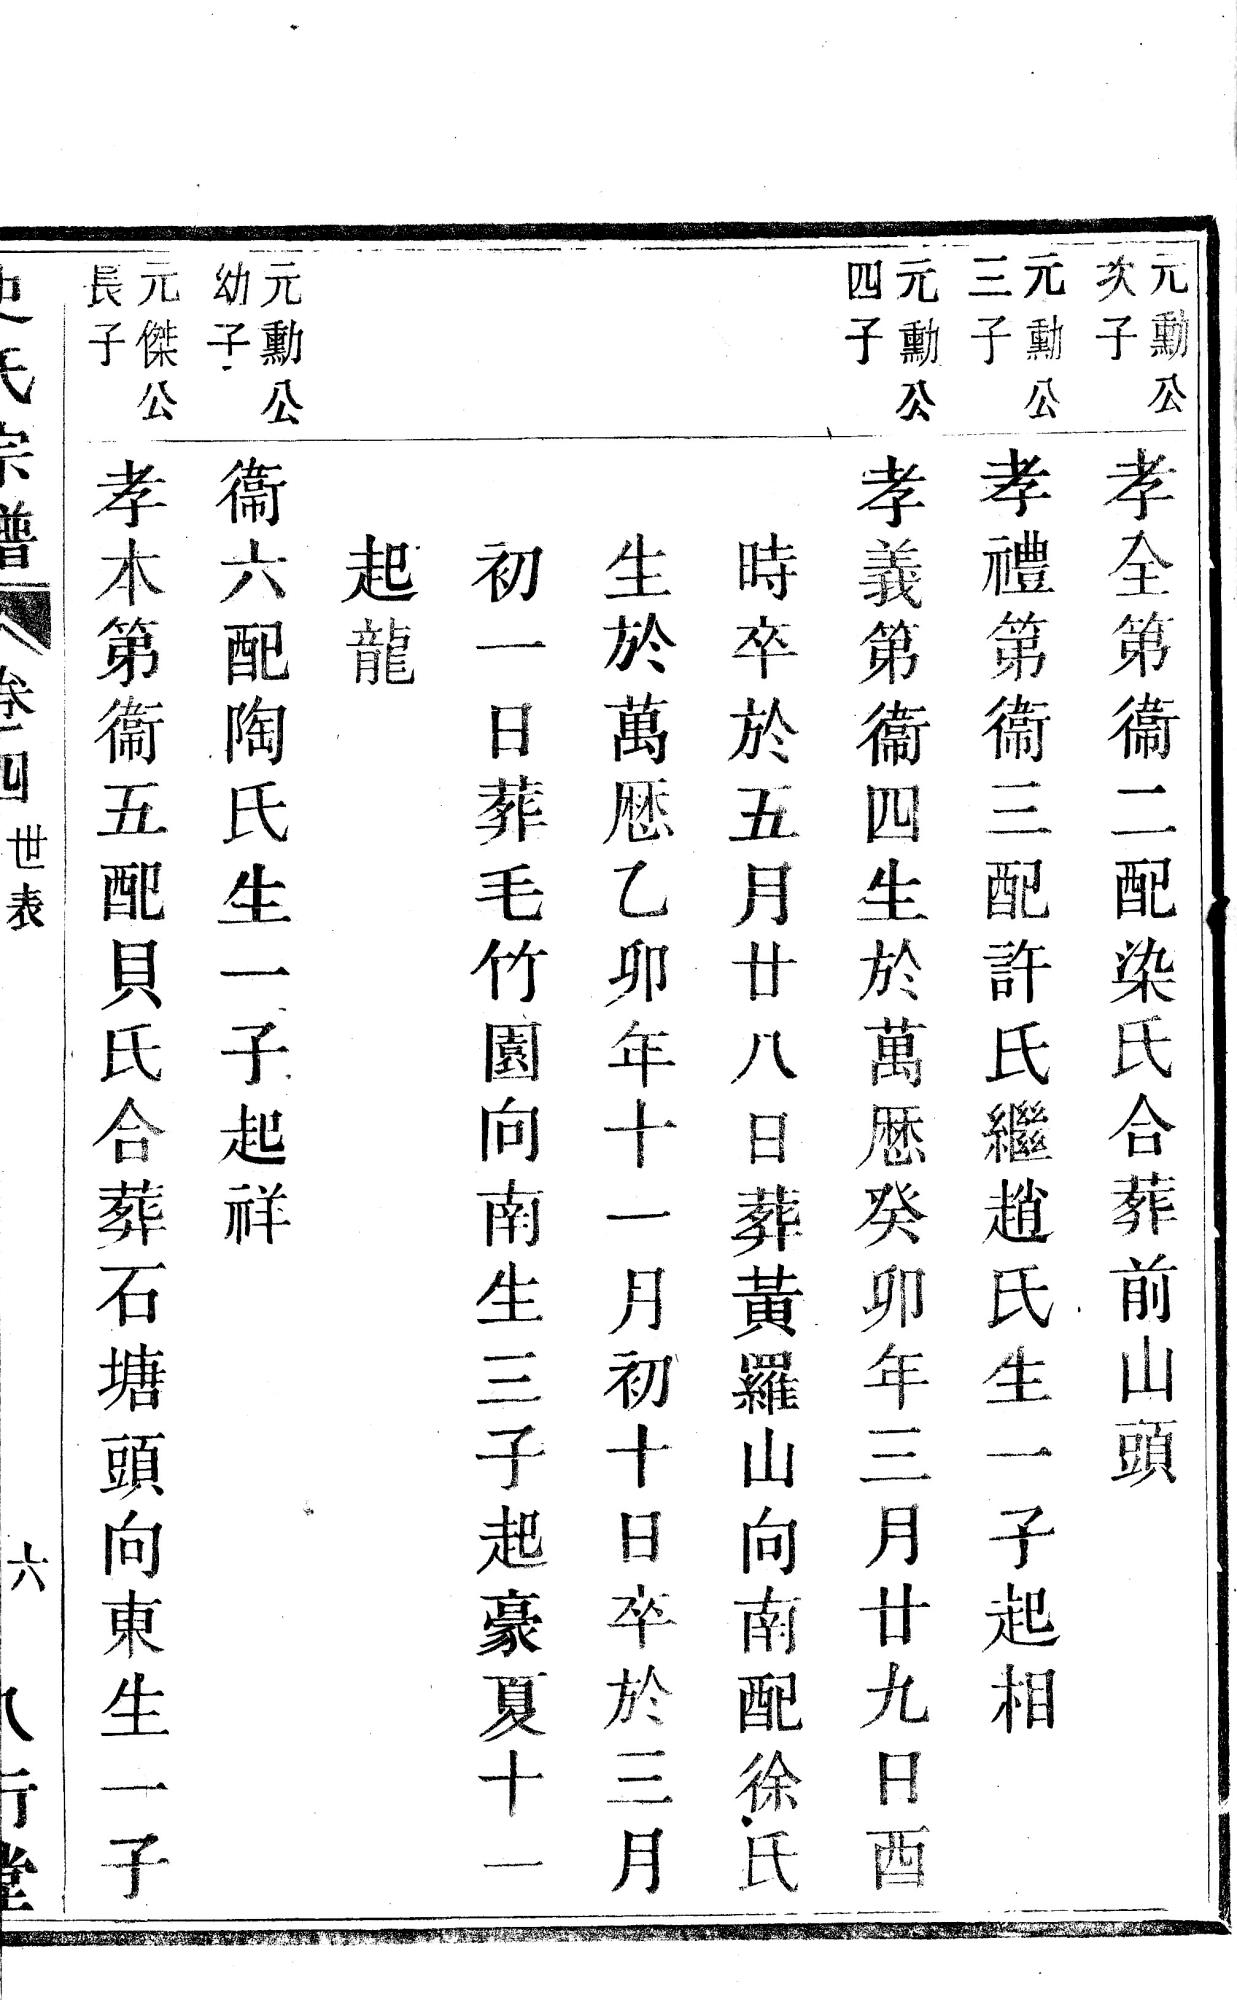 元勳公
次子
孝全第衞二配染氏合葬前山頭
元勳公
三子
孝禮第衞三配許氏繼趙氏生一子起相
元勳公
四子
孝義第衞四生於萬厯癸卯年三月廿九日酉
時卒於五月廿八日葬黃羅山向南配徐氏
生於萬厯乙卯年十一月初十日卒於三月
初一日葬毛竹園向南生三子起豪夏十一
起龍
元勳公
幼子
衞六配陶氏生一子起祥
元傑公
長子
孝本第衞五配貝氏合葬石塘頭向東生一子
史氏宗譜
卷四
世表
六
八行堂